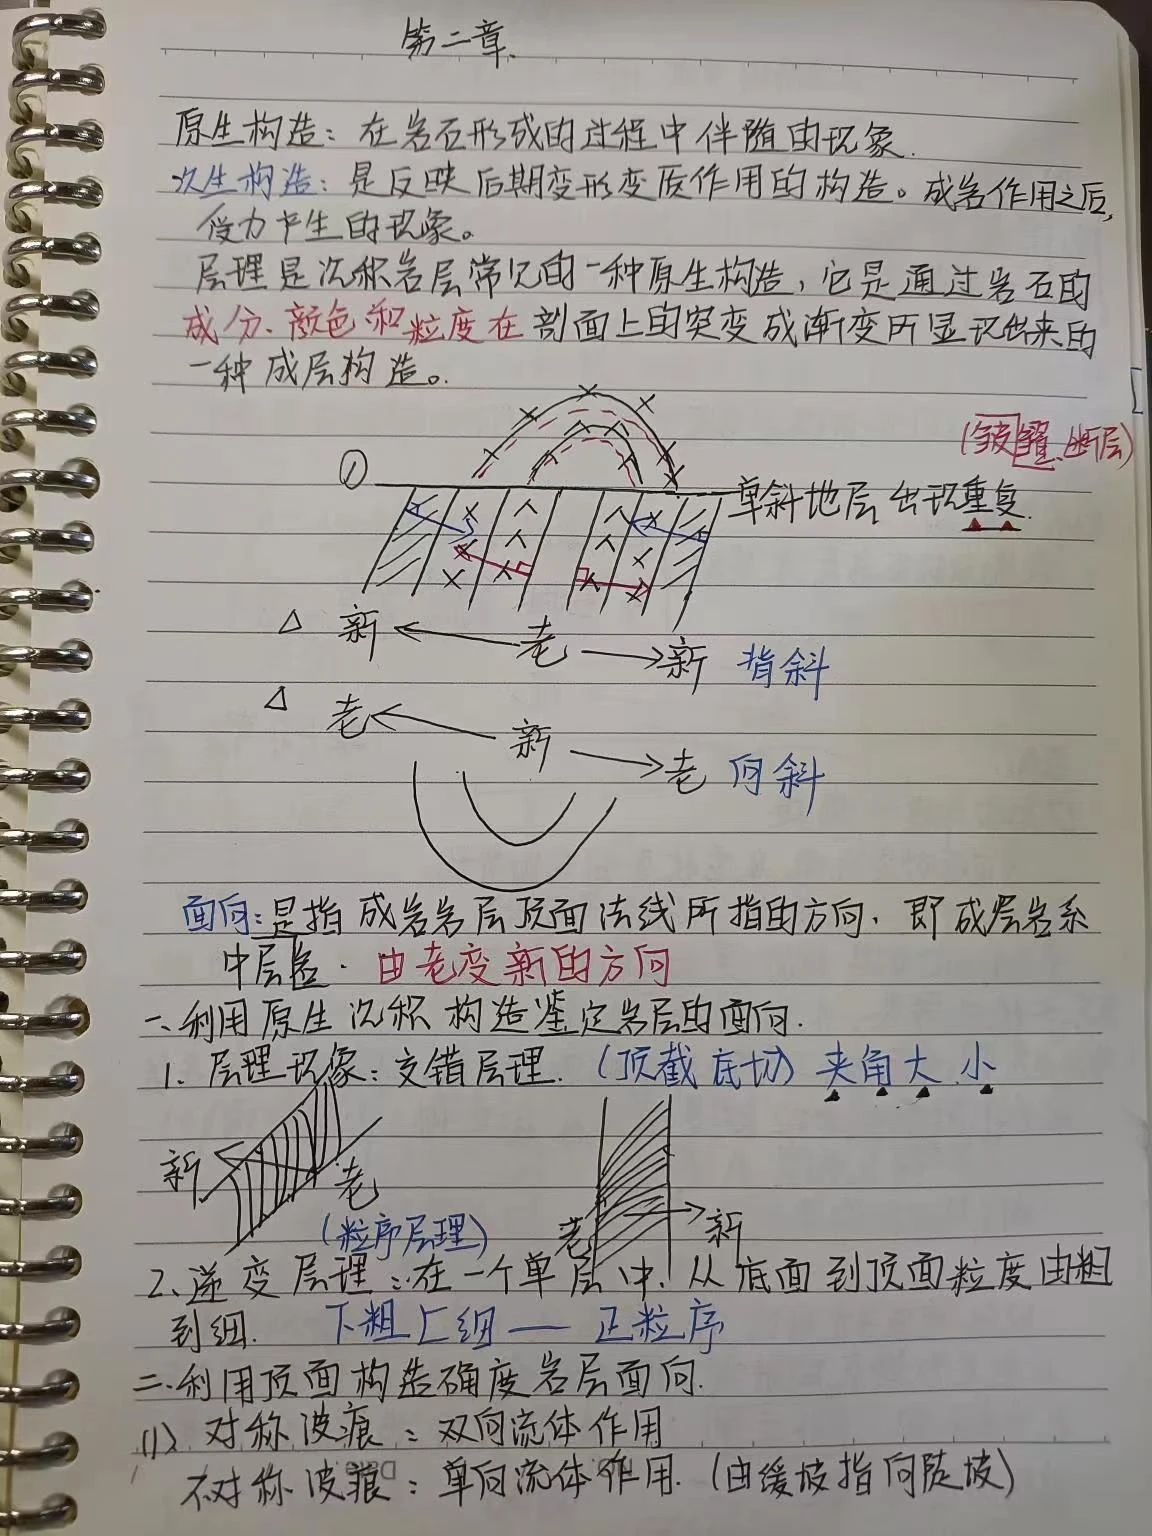 第二章.
原生构造：在岩石形成的过程中伴随的现象.
次生构造：是反映后期变形变质作用的构造。成岩作用之后,
受力产生的现象。
层理是沉积岩层常见的一种原生构造，它是通过岩石的
成分、颜色和粒度在剖面上的突变或渐变所显现出来的
一种成层构造。
(褶皱、断层)
① 单斜地层出现重复.
△ 新 老 新 背斜
△ 老 新 老 向斜
面向：是指成岩岩层顶面法线所指的方向，即成层岩系
中层岩. 由老变新的方向
一、利用原生沉积构造鉴定岩层的面向.
1. 层理现象：交错层理. (顶截底切) 夹角大 小
新 老 老 新
(粒序层理)
2、递变层理：在一个单层中，从底面到顶面粒度由粗
到细. 下粗上细 — 正粒序
二、利用顶面构造确度岩层面向.
(1) 对称波痕：双向流体作用
不对称波痕：单向流体作用.(由缓坡指向陡坡)